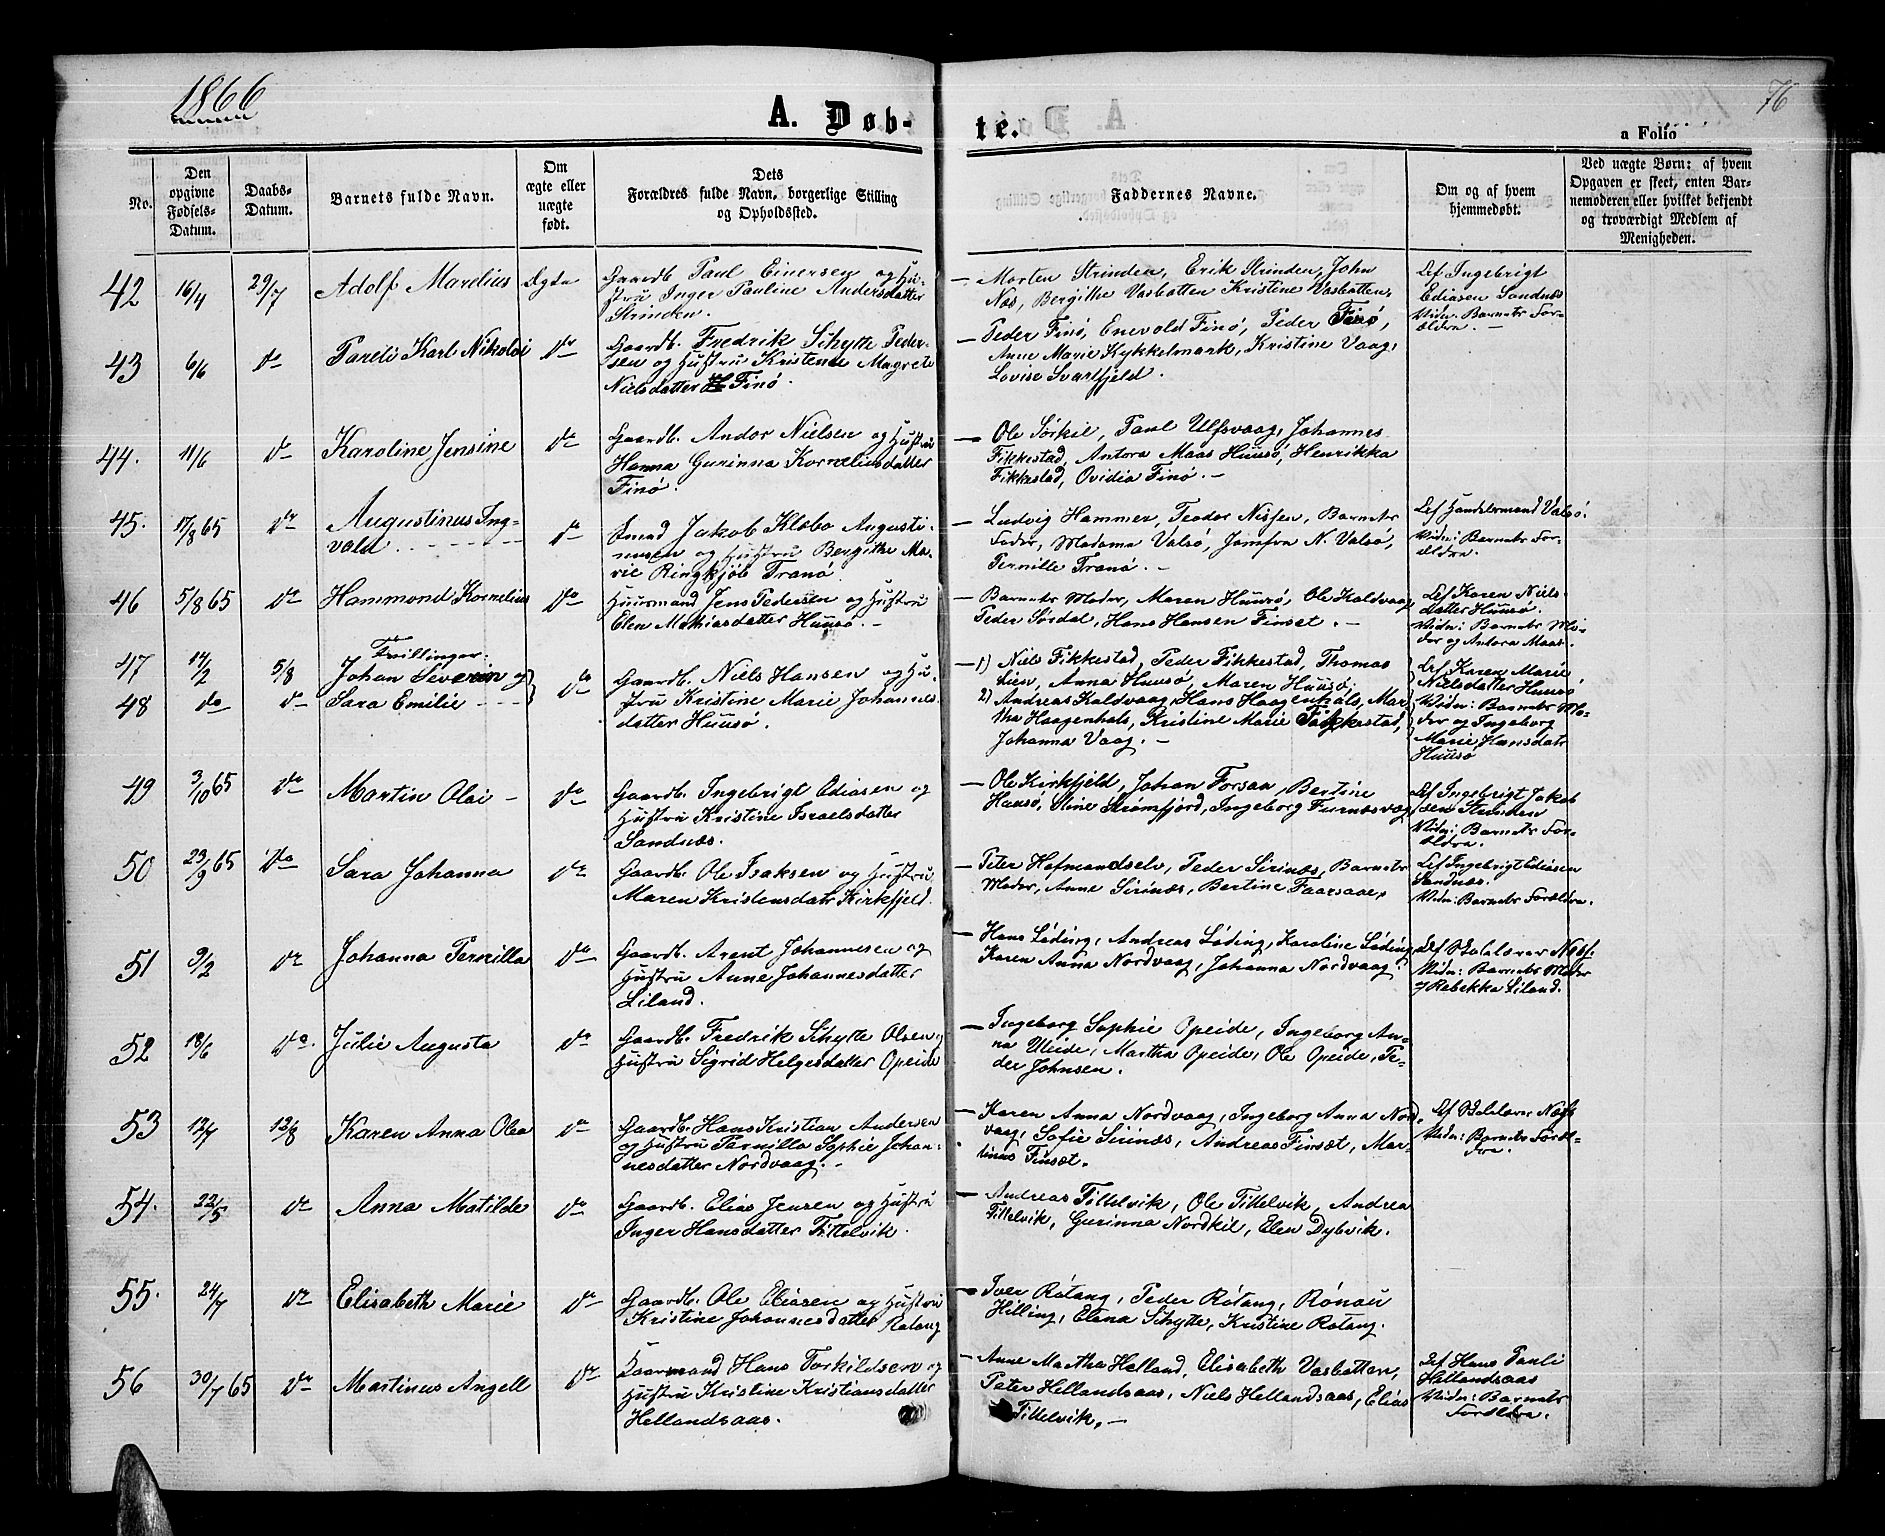 1866
76
A. Døb-
te.
a Folio
No.
Den
opgivne
Fødsels-
Datum.
Daabs-
Datum.
Barnets fulde Navn.
Om
ægte eller
uægte
født.
Dets
Forældres fulde Navn, borgerlige Stilling
og Opholdssted.
Faddernes Navne.
Om og af hvem
hjemmedøbt.
Ved uægte Børn: af hvem
Opgaven er skeet, enten Bar-
nemoderen eller hvilket bekjendt
og troværdigt Medlem af
Menigheden.
42 16/4 29/7 Adolf Marelius Ægte
Gaardb. Paul Einersen og Hu-
stru Inger Pauline Andersdatter
Strinden.
— Morten Strinden, Erik Strinden, John
Næs, Bergithe Vasbotten, Kristine Vasbotten.
Af Ingebrigt
Ediasen Sandnæs
Vidn: Barnets For-
ældre. —
43 6/6 do Pareli Karl Nikolai do
Gaardb. Fredrik Schytte Peder-
sen og Hustru Kristene Magrete
Nielsdatter Finø.
— Peder Finø, Enevold Finø, Peder Finø,
Anne Marie Kykkelmark, Kristine Vaag,
Lovise Svartfjeld.
44. 11/6 do Karoline Jensine do
Gaardb. Andor Nielsen og Hustru
Hanna Gurinna Korneliusdatter
Finø.
— Ole Sørkil, Paul Ulfsvaag, Johannes
Fikkestad, Antora Maas Huusø, Henrikka
Fikkestad, Ovidia Finø. —
45. 17/8 65 do Augustinus Ing-
vald do
Smed Jakob Klæbo Augusti-
nusen og Hustru Bergithe Ma-
rie Ringkjøb Tranø.
— Ludvig Hammer, Teodor Nissen, Barnets
Fader, Madame Valsø, Jomfru N. Valsø,
Pernille Tranø. —
Af Handelsmand Valsø.
Vidn: Barnets For-
ældre.
46 5/8 65 do Hammond Kornelius do
Huusmand Jens Pedersen og Hustru
Elen Mathiasdatter Huusø. —
— Barnets Moder, Maren Huusø, Ole Kaldvaag,
Peder Sørdal, Hans Hansen Finset. —
Af Karen Niels-
datter Huusø.
Vidn: Barnets Mo-
der og Antora Maas.
Tvillinger:
47 14/2 5/8 Johan Severin og
48 do do Sara Emilie do
Gaardb. Niels Hansen og Hu-
stru Kristine Marie Johannes-
datter Huusø.
— 1) Niels Fikkestad, Peder Fikkestad, Thomas
Lien, Anna Huusø, Maren Huusø.
2) Andreas Kaldvaag, Hans Haagenhals, Mar-
tha Haagenhals, Kristine Marie Fikkestad,
Johanna Vaag. —
Af Karen Marie
Nielsdatter Huusø
Vidn: Barnets Mo-
der og Ingeborg
Marie Hansdatr
Huusø
49 3/10 65 do Martin Olai — do
Gaardb. Ingebrigt Ediasen og
Hustru Kristine Israelsdatter
Sandnæs.
— Ole Kirkfjeld, Johan Forsan, Bertine
Huusø, Stine Strømfjord, Ingeborg Furnæsvaag
Af Ingebrigt Jakob
sen Strinden
Vidn: Barnets For-
ældre.
50 23/9 65 do Sara Johanna do
Gaardb. Ole Isaksen og Hustru
Maren Kristensdatr Kirkfjeld.
— Peter Hofmandselv, Peder Sirinæs, Barnets
Moder, Anne Sirinæs, Bertine Faarsaae.
Af Ingebrigt Ediasen
Sandnæs.
Vidn: Barnets Forældre.
51 9/2 do Johanna Pernilla do
Gaardb. Arent Johannesen og
Hustru Anne Johannesdatter
Liland.
— Hans Løding, Andreas Løding, Karoline Løding,
Karen Anna Nordvaag, Johanna Nordvaag.
Af Skolelærer Næss.
Vidn: Barnets Moder
og Rebekka Liland.
52 18/6 do. Julie Augusta do
Gaardb. Fredrik Schytte Olsen,
Hustru Sigrid Helgesdatter Opeide
— Ingeborg Sophie Opeide, Ingeborg An-
na Uleide, Martha Opeide, Ole Opeide, Pe-
der Johnsen.
53 12/7 12/8 Karen Anna Olea do
Gaardb. Hans Kristian Andersen
og Hustru Pernilla Sophie Johan-
nesdatter Nordvaag. —
— Karen Anna Nordvaag, Ingeborg Anna Nord-
vaag, Sofie Sirinæs, Andreas Finsæt, Mar-
tinus Finsæt.
Af Skolelærer Næss
Vidn: Barnets Foræl-
dre.
54. 22/5 do Anna Matilde do
Gaardb. Elias Jensen og Hustru
Inger Hansdatter Tittelvik.
— Andreas Tittelvik, Ole Tittelvik, Andrea
Tittelvik, Gurinna Nordkil, Elen Dybvik.
55. 24/7 do Elisabeth Marie do
Gaardb. Ole Eliasen og Hustru
Kristine Johannesdatter Røtang
— Iver Røtang, Peder Røtang, Rønau
Hilling, Elena Schytte, Kristine Røtang.
56 30/7 65 do Martinus Angell do
Gaardmand Hans Torkildsen og
Hustru Kristine Kristiansdatter
Hellandsaas.
— Anne Martha Helland, Elisabeth Vasbotten,
Peter Hellandsaas, Niels Hellandsaas, Elias
Tittelvik. —
Af Hans Pauli
Hellandsaas
Vidn: Barnets
Forældre.